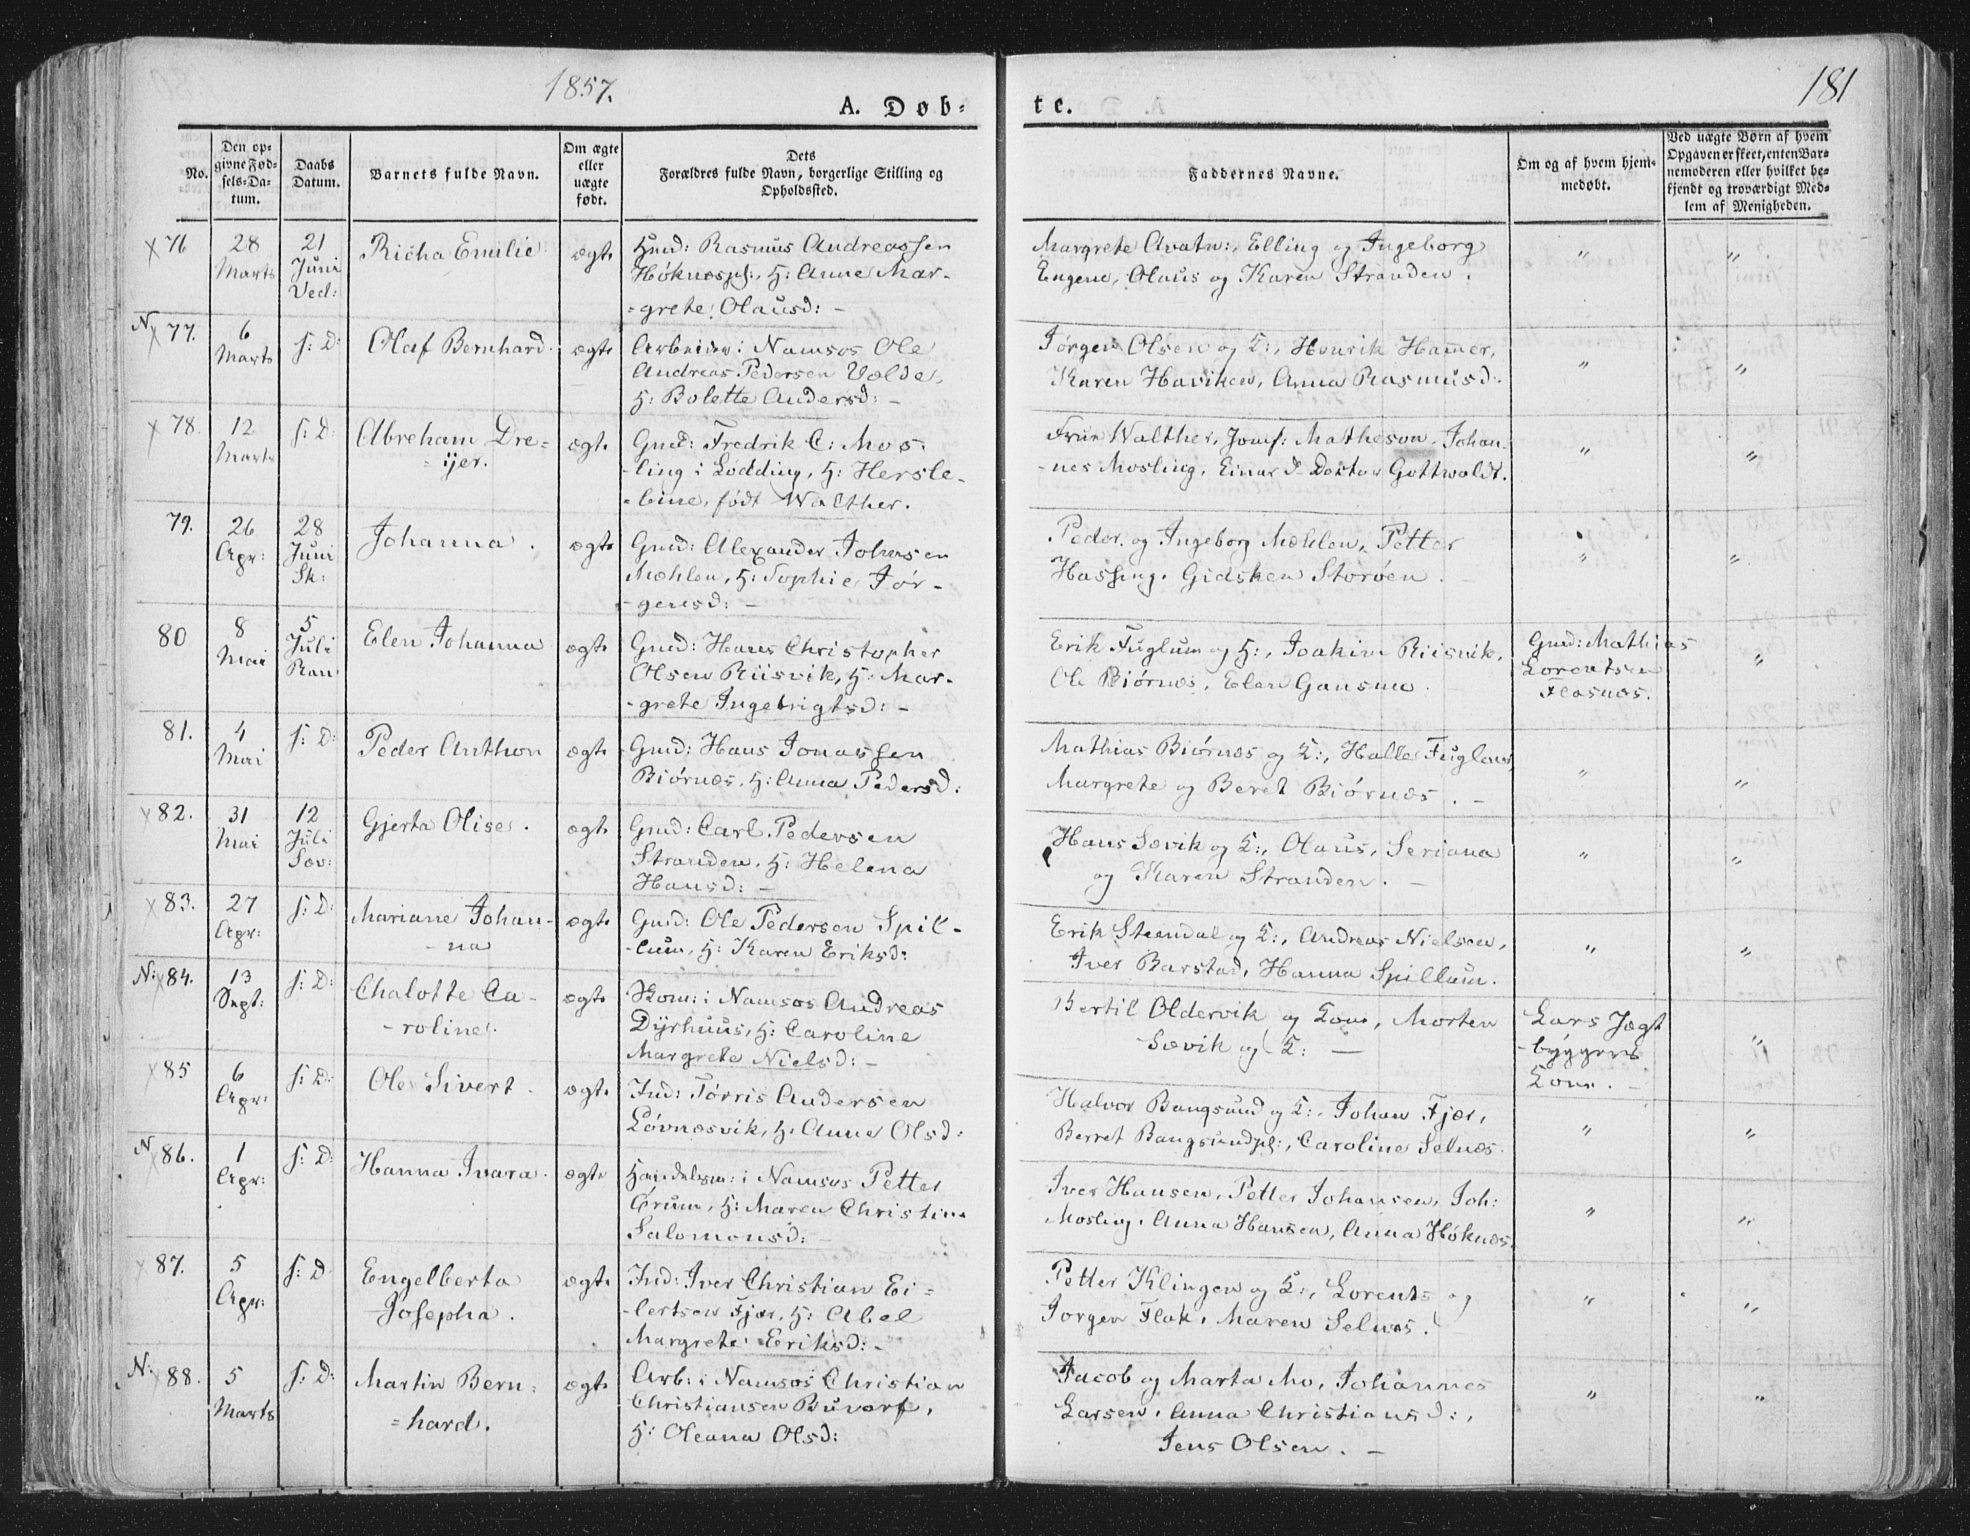 1857.
181
A. Døb=
te.
No.
Den op-
givne Fød-
sels-Da-
tum.
Daabs
Datum.
Barnets fulde Navn.
Om ægte
eller
uægte
født.
Dets
Forældres fulde Navn, borgerlige Stilling og
Opholdssted.
Faddernes Navne.
Om og af hvem hjem-
medøbt.
Ved uægte Børn af hvem
Opgaven er skeet, enten Bar-
nemoderen eller hvilket be-
kjendt og troværdigt Med-
lem af Menigheden.
x 76
28
Marts
21
Juni
Ved:
Richa Emilie
ægte
Huusd: Rasmus Andreassen
Høknæspl:, H: Anne Mar-
-grete Olausd: -
Margrete Avatn:, Elling og Ingeborg
Engene, Olaus og Karen Stranden.
"
"
N x 77.
6
Marts
s: D:
Olaf Bernhard
ægte
Arbeider i Namsos Ole
Andreas Pedersen Valde,
H: Bolette Andersd: -
Jørgen Olsen og K:, Henrik Hammer,
Karen Haviken, Anna Rasmusd:
"
"
x 78.
12
Marts
s: D:
Abreham Dre-
= ijer.
ægte
Gmd: Fredrik C: Mos-
-ling i Lødding, H: Hersle-
-bine, født Walther.
Frue Walther, Jomf: Matheson, Johan-
-nes Mosling, Einar & Doctor Gottwaldt.
"
"
79.
26
Apr:
28
Juni
Sk:
Johanna.
ægte
Gmd: Alexander Johnsen
Mæhlen, H: Sophie Jør-
- gensd: -
Peder og Ingeborg Mæhlen, Petter
Hassing, Gidsken Storøen.
"
"
80
8
Mai
5
Juli
Ran
Elen Johanna
ægte
Gmd: Hans Christopher
Olsen Riisvik, H: Mar-
-grete Ingebrigtsd: -
Erik Fuglum og H:, Joakim Riisvik,
Ole Biørnes, Elen Gansmo.
Gmd: Mathias
Lorentsen
Flosnes.
"
81.
4
Mai
s: D:
Peder Anthon
ægte
Gmd: Hans Jonassen
Biørnæs, H: Anna Pedersd:
Mathias Biørnæs og K:, Halle Fuglum,
Margrete og Beret Biørnæs. -
"
"
x 82.
31
Mai
12
Juli
Sæv:
Gjerta Olise.
ægte
Gmd: Carl Pedersen
Stranden, H: Helena
Hansd: -
Hans Sævik og K:, Olaus, Seriana
og Karen Stranden. -
"
"
x 83.
27
Apr:
s: D:
Mariane Johan-
- na
ægte
Gmd: Ole Pedersen Spil-
-lum, H: Karen Eriksd:
Erik Steendal og K:, Andreas Nielsen,
Iver Barstad, Hanna Spillum.
"
"
N: x 84.
13
Sept:
s: D:
Chalotte Ca-
- roline.
ægte
Kom: i Namsos Andreas
Dyrhuus, H: Caroline
Margrete Nielsd: -
Bertil Oldervik og Kone, Morten
Sævik og K: -
Lars Jægt
-byggers
Kone. -
"
x 85
6
Apr:
s: D:
Ole Sivert.
ægte
Ind: Tørris Andersen
Løvnæsvik, H: Anne Olsd:
Halvor Bangsund og K:, Johan Fjær,
Berret Bangsundpl:, Caroline Selnæs.
"
"
N x 86.
1
Apr:
s: D:
Hanna Ivara.
ægte
Handelsm: i Namsos Petter
Ørum, H: Maren Christine
Salomonsd: -
Iver Hansen, Petter Johansen, Joh:
Mosling, Anna Hansen, Anna Høknæs.
"
"
x 87.
5
Apr:
s: D
Engelberta
-Josepha.
ægte
Ind: Iver Christian Ei-
-lertsen Fjær, H: Abel
Margrete Eriksd: -
Petter Klingen og K:, Lorents og
Jørgen Flak, Maren Selnæs.
"
"
N: x 88.
5
Marts
s: D:
Martin Bern-
=hard.
ægte
Arb: i Namsos Christian
Christiansen Buvarp,
H: Oleana Olsd:
Jacob og Marta Mo, Johannes
Larsen, Anna Christiansd:,
Jens Olsen. -
"
"